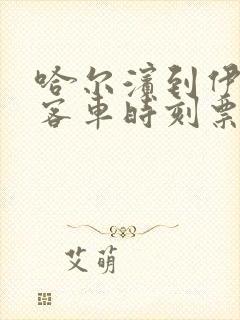 哈尔滨到伊
客车时刻票
艾萌